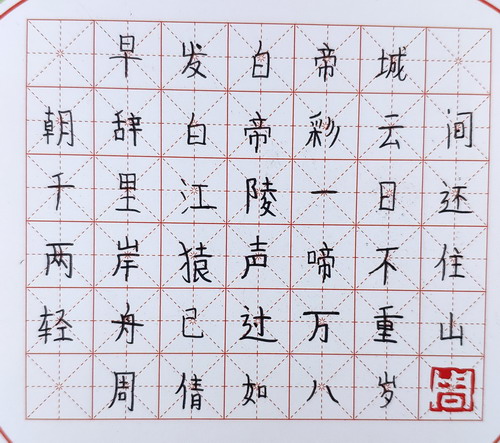 早发白帝城
朝辞白帝彩云间
千里江陵一日还
两岸猿声啼不住
轻舟已过万重山
周倩如八岁 周